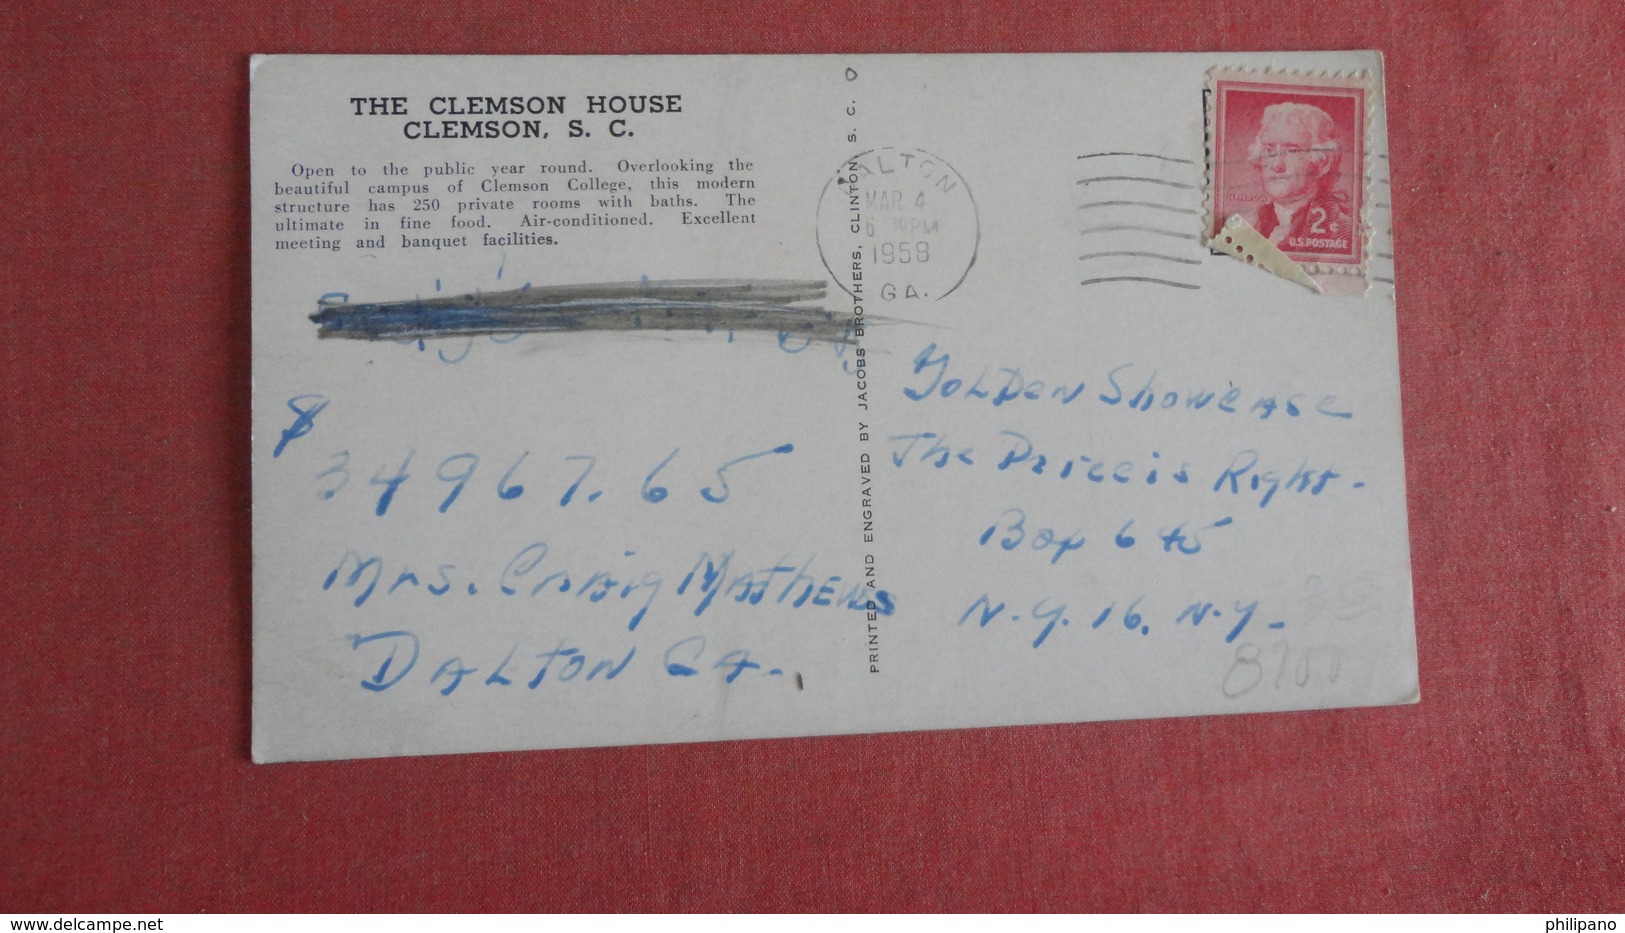 THE CLEMSON HOUSE
CLEMSON, S. C.
Open to the public year round. Overlooking the
beautiful campus of Clemson College, this modern
structure has 250 private rooms with baths. The
ultimate in fine food. Air-conditioned. Excellent
meeting and banquet facilities.
$
34967.65
Mrs. Craig Mathews
DALTON GA.
PRINTED AND ENGRAVED BY JACOBS BROTHERS, CLINTON, S. C.
DALTON
MAR 4
PM
1958
GA.
2¢
U.S. POSTAGE
Golden Showcase
The Price is Right.
Box 645
N.Y. 16, N.Y.
8700
www.delcampe.net
philipano